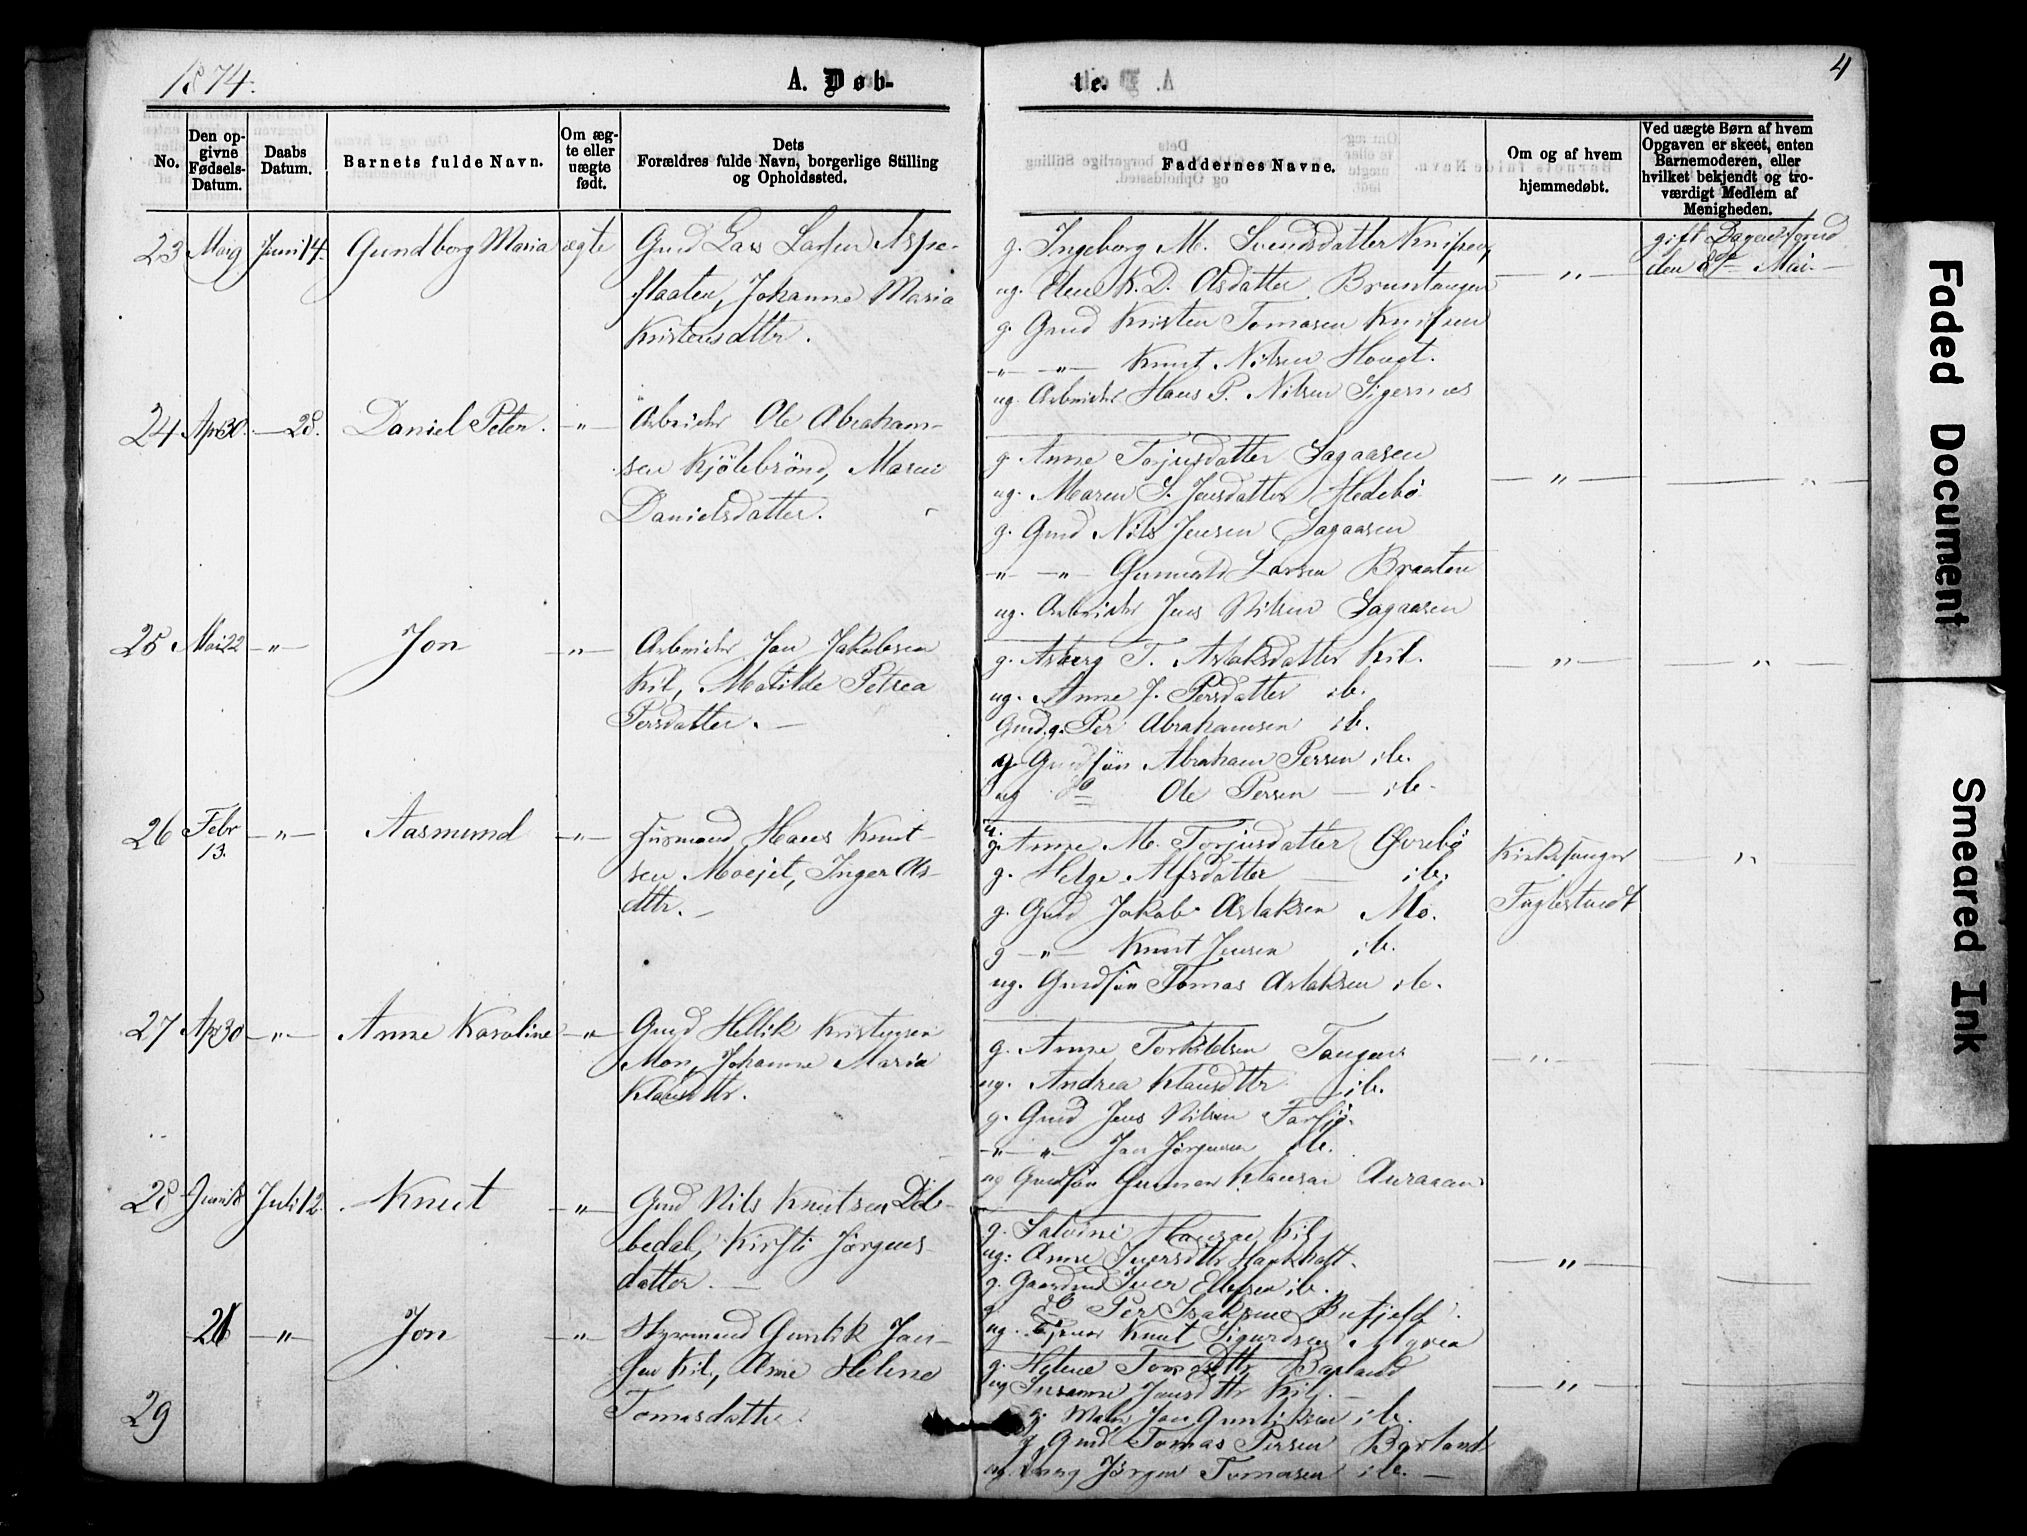 1874.
A. Døb-
te.
4
No.
Den op-
givne
Fødsels-
Datum.
Daabs
Datum.
Barnets fulde Navn.
Om æg-
te eller
uægte
født.
Dets
Forældres fulde Navn, borgerlige Stilling
og Opholdssted.
Faddernes Navne.
Om og af hvem
hjemmedøbt.
Ved uægte Børn af hvem
Opgaven er skeet, enten
Barnemoderen, eller
hvilket bekjendt og tro-
værdigt Medlem af
Menigheden.
23 Juni 14. Gundborg Maria ægte Gmd Lars Larsen Aspe-
flaaten, Johanne Maria
Kristensdttr.
g. Ingeborg M. Svendsdatter Knipen,
ug. Elen K. D. Olsdatter Bruntangen
g. Gmd Kristen Tomasen Knipen
„ „ Knut Nilsen Hougt.
ug. Arbeider Hans P. Nilsen Sigernæs
„
gift
den 8de Mai.
24 Apr 30. — 28. Daniel Peter. „ Arbeider Ole Abraham-
sen Kjölebrönd, Maren
Danielsdatter.
g. Anne Torjusdatter Sagaasen
ug. Maren S. Jensdatter Hedebö
g. Gmd Nils Jensen Sagaasen
„ „ Gunneuld Larsen Braaten
ug. Arbeider Jens Nilsen Sagaasen
„ „
25 Mai 22 „ Jon „ Arbeider Jan Jakobsen
Kil, Matilde Petrea
Persdatter.
g. Asberg T. Aslaksdatter Kil.
ug. Anne J. Persdatter ib.
Gmd. g. Per Abrahamsen ib.
g. Gmdsön Abraham Persen ib.
ug do Ole Persen — ib.
„ „
26 Febr
13. „ Aasmund „ Husmand Hans Knut-
sen Moejet, Inger As-
dttr.
g. Anne M. Torjusdatter Øvrebö
g. Helge Alfsdatter ib.
g. Gmd Jakob Aslaksen Mo.
g „ Knut Jensen ib.
ug. Gmdsön Tomas Aslaksen ib.
Kirkesanger
„
27 Apr 30 „ Anne Karoline „ Gmd Hellik Kristensen
Mon, Johanne Maria
Klausdttr.
g. Anne Torkildsen Tangen
ug. Andrea Klausdttr ib.
g. Gmd Jens Nilsen Farsjö.
„ „ Jan Jörgensen ib.
ug Gmdsön Gunnar Klausen
„
28 Juli 12. Knut „ Gmd Nils Knutsen Döl-
bedal, Kirsti Jörgens-
datter.
g. Salvine Hansen Kil,
ug. Anne Iversdttr
g. Gaardmd Iver Ellefsen ib.
g. do Per Isaksen Bufjeld.
ug. Tjener Knut Sigurdsen
„
29 21 „ Jon „ Styrmand Guntik Jan-
sen Kil, Anne Helene
Tomasdatter.
g. Helene Tomasdttr Barland
ug Susanne Jansdttr Kil.
g. Matr Jan Guntiksen ib.
g. Gmd Tomas Persen Barland
ug. Jörgen Tomasen ib.
„
Faded Document
Smeared Ink